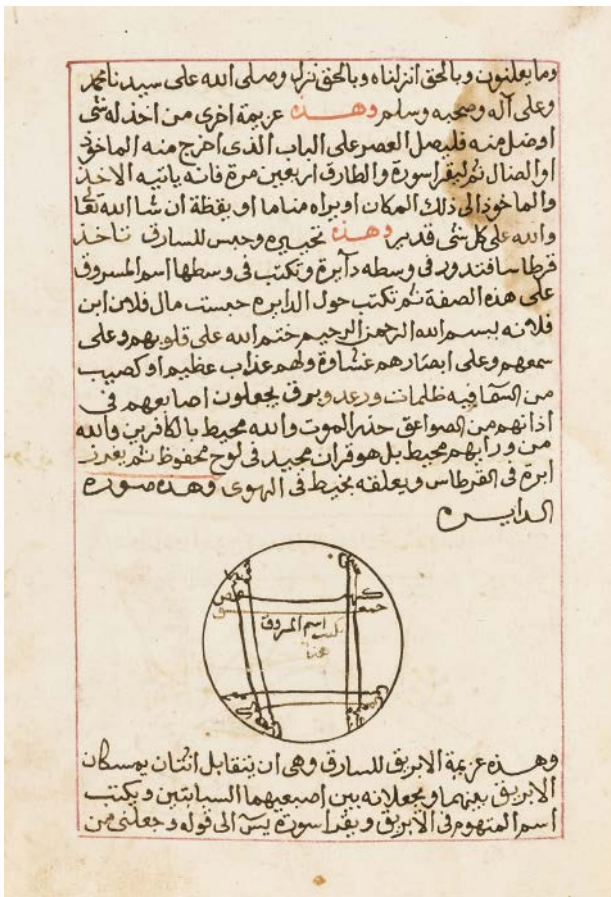 وما يعلنون وبالحق انزلناه وبالحق نزل وصلى الله على سيدنا محمد
وعلى آله وصحبه وسلم وهذه عزيمة اخرى من اخذ له شئ
او ضل منه فليصل العصر على الباب الذى اخرج منه الماخوذ
او الضال ثم ليقرا سورة والطارق اربعين مرة فانه ياتيه الاخذ
والماخوذ الى ذلك المكان او يراه مناما او يقظة ان شا الله تعالى
والله على كل شئ قدير وهذه تحييره وحبس للسارق تاخذ
قرطاسا فتدور فى وسطه دآيرة وتكتب فى وسطها اسم المسروق
على هذه الصفة ثم تكتب حول الدايره حبست مال فلان ابن
فلانه بسم الله الرحمن الرحيم ختم الله على قلوبهم وعلى
سمعهم وعلى ابصارهم غشاوة ولهم عذاب عظيم او كصيب
من السما فيه ظلمات ورعد وبرق يجعلون اصابعهم فى
اذانهم من الصواعق حذر الموت والله محيط بالكافرين والله
من ورايهم محيط بل هو قران مجيد فى لوح محفوظ ثم يغرز
ابرة فى القرطاس ويعلقه بخيط فى الهوى وهذه صورة
الدايره
اسم المسروق
وهذه عزيمة الابريق للسارق وهى ان يتقابل اثنان يمسكان
الابريق بينهما ويجعلانه بين اصبعيهما السبابتين ويكتب
اسم المتهوم فى الابريق ويقرا سورة يس الى قوله وجعلنى من